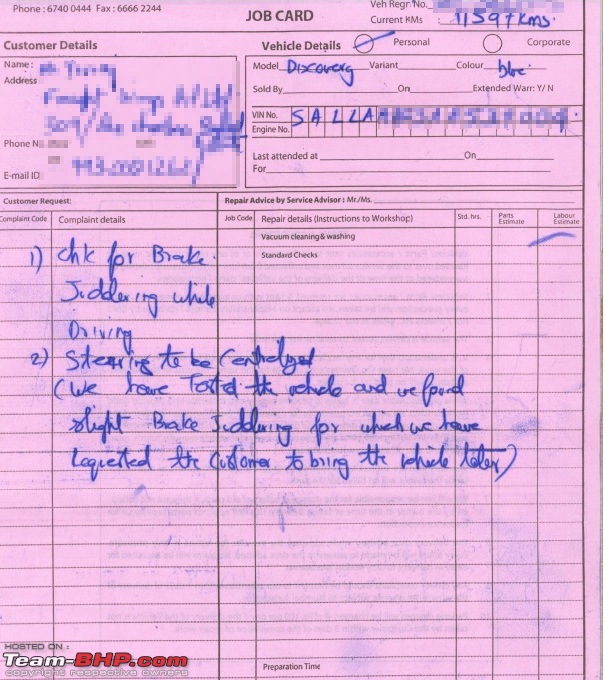 Phone : 6740 0444 Fax : 6666 2244
JOB CARD
Veh Regn No.
Current KMs : 11597 kms.
Customer Details
Vehicle Details
Personal
Corporate
Name :
Address
Model Discovery Variant Colour blue
Sold By On Extended Warr: Y/ N
VIN No. S A L L A
Engine No.
Phone N
E-mail ID
Last attended at On
For
Customer Request:
Repair Advice by Service Advisor : Mr./Ms.
Complaint Code Complaint details Job Code Repair details (Instructions to Workshop) Std. hrs. Parts Estimate Labour Estimate
Vacuum cleaning & washing
Standard Checks
1) chk for Brake.
Juddering while
Driving
2) Steering to be Centralized
(we have Tested the vehicle and we found
slight Brake Juddering for which we have
requested the Customer to bring the vehicle later)
Preparation Time
HOSTED ON :
Team-BHP.com
copyright respective owners